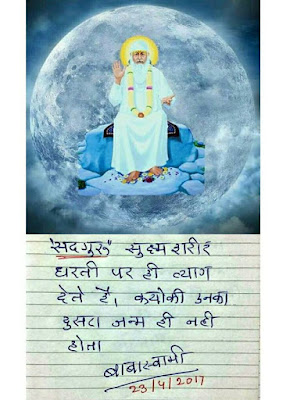 "सदगुरु" सुक्ष्म शरीर
धरती पर ही त्याग
देते है, क्योकी उनका
दुसरा जन्म ही नही
होता
बाबास्वामी
23/4/2017